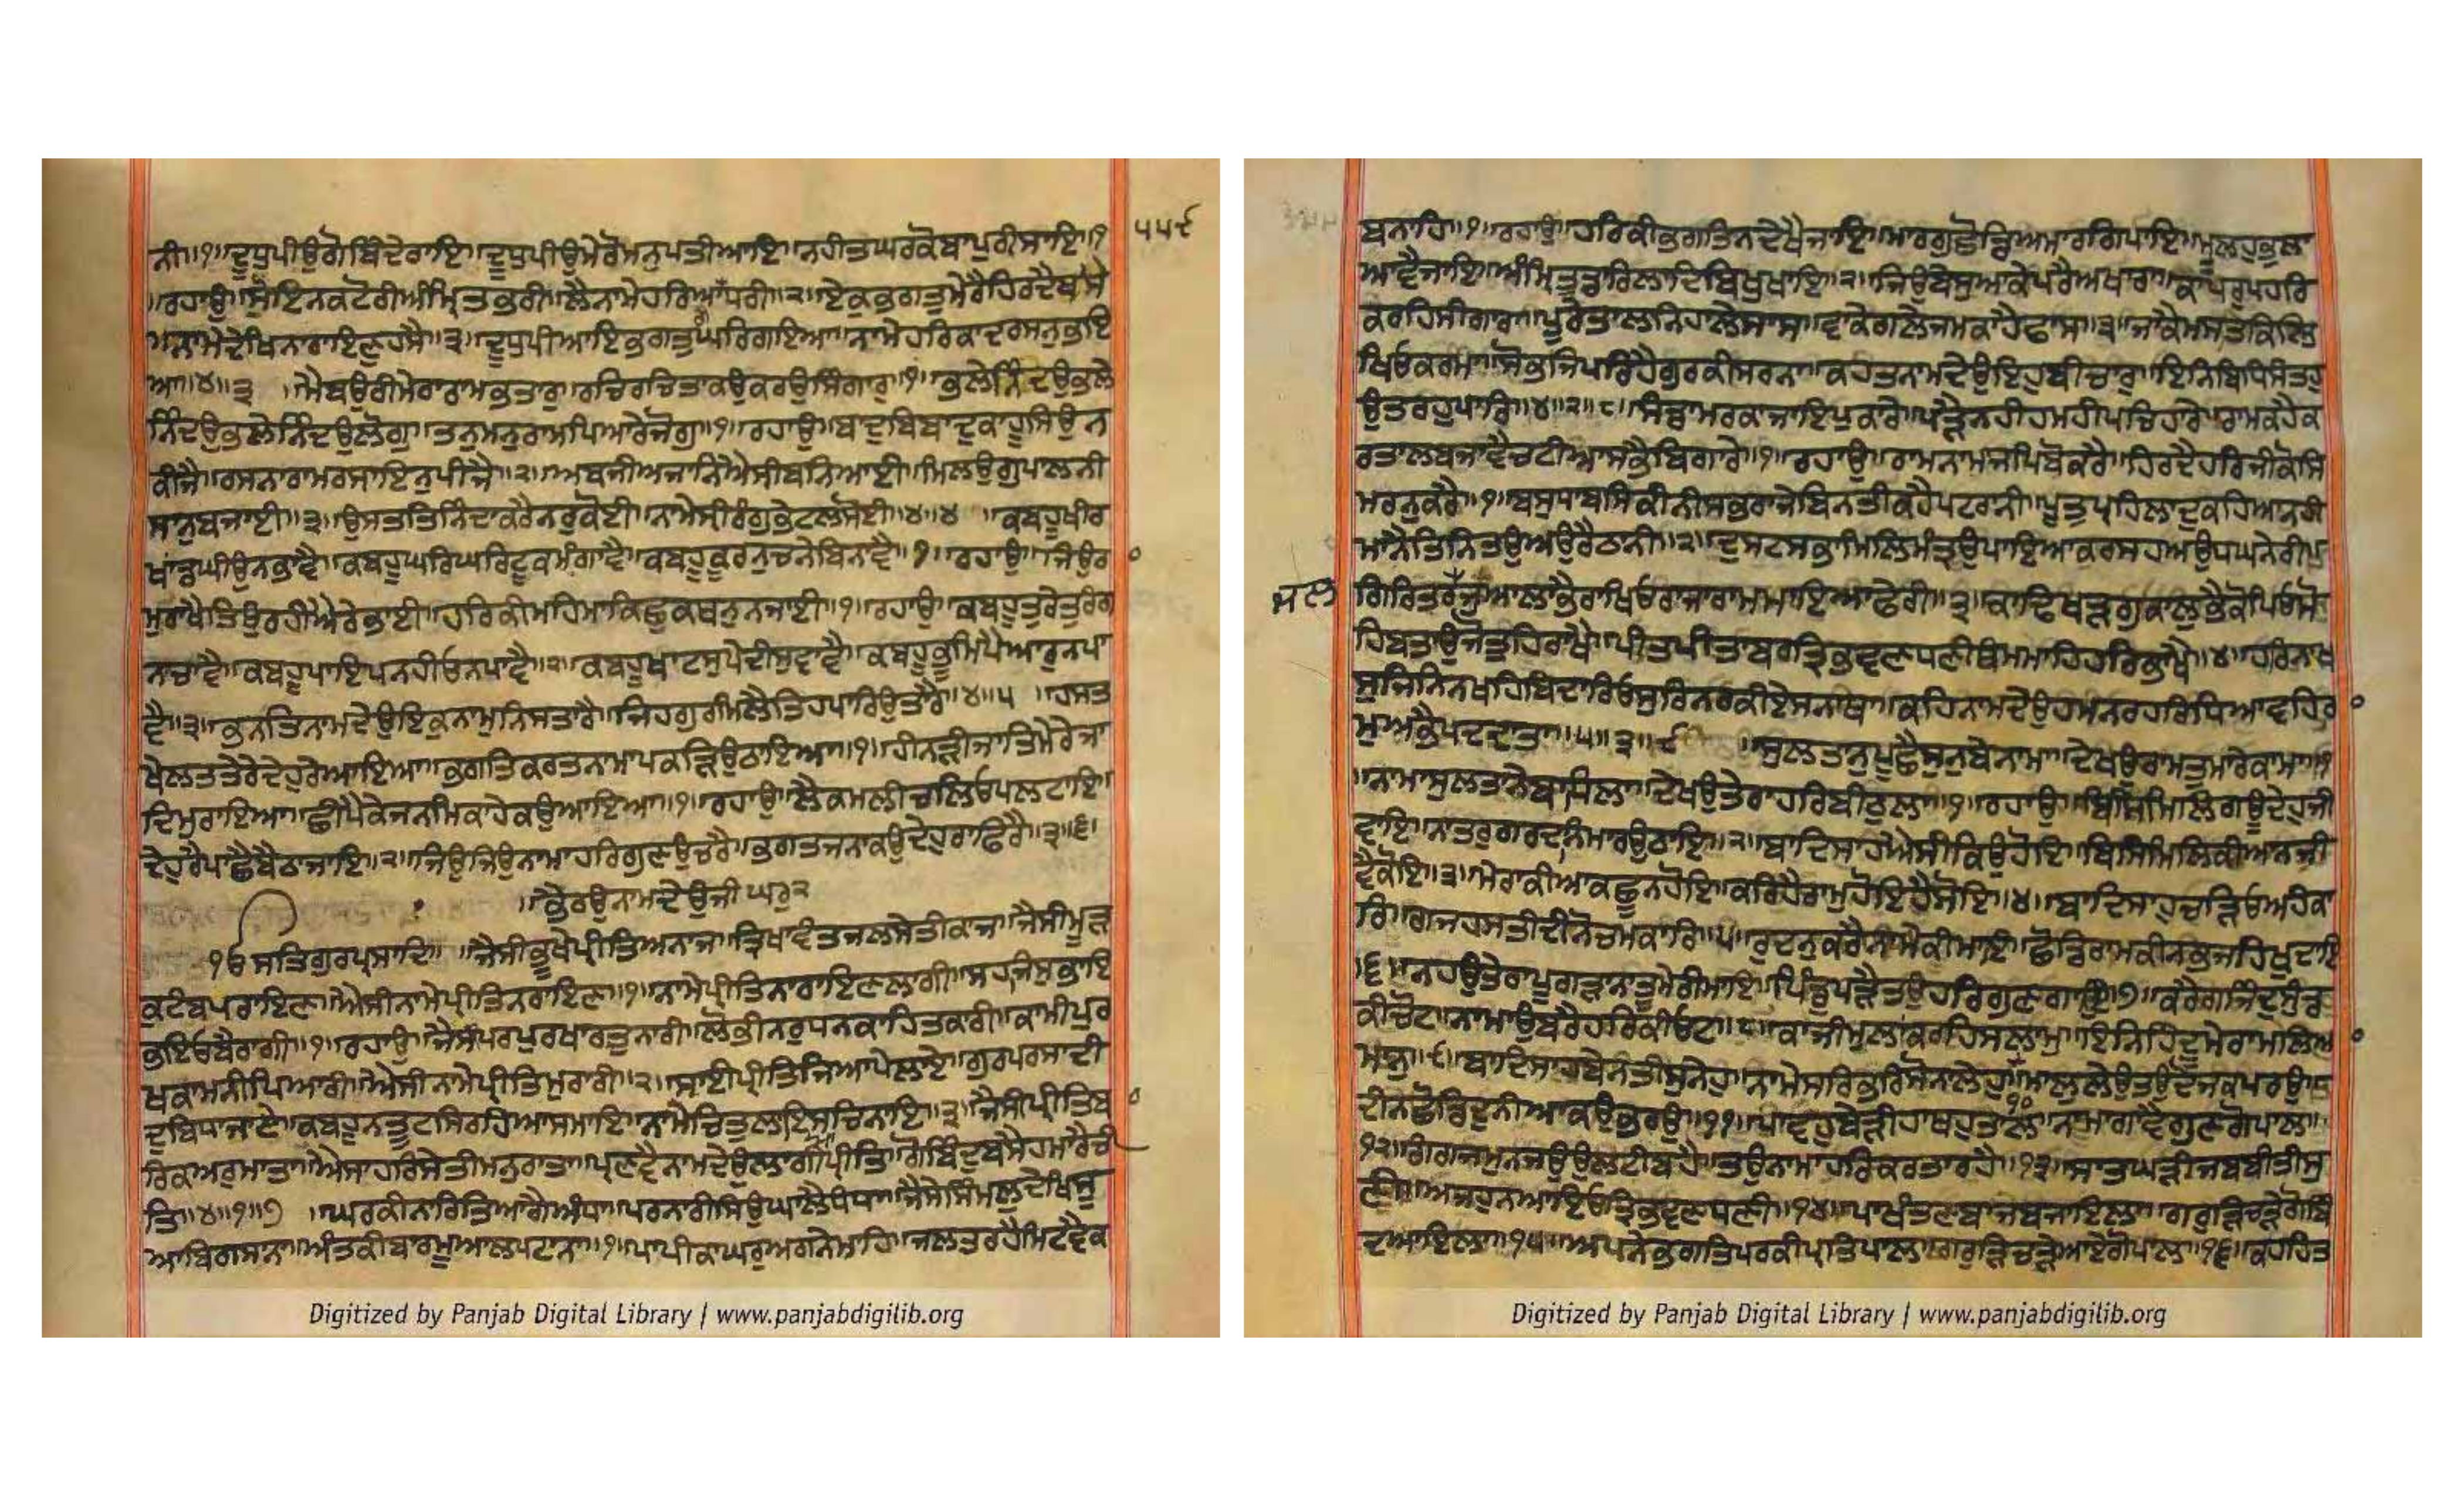 ੫੫੯
ਨੀ॥੧॥ਦੂਧੁਪੀਉਗੋਬਿੰਦੇਰਾਇ॥ਦੂਧੁਪੀਉਮੇਰੋਮਨੁਪਤੀਆਇ॥ਨਹੀਤਘਰਕੋਬਾਪੁਰੀਸਾਇ॥੧
॥ਰਹਾਉ॥ਸੋੁਇਨਕਟੋਰੀਅੰਮ੍ਰਿਤਭਰੀ॥ਲੈਨਾਮੇਹਰਿਆਗੈਧਰੀ॥੨॥ਏਕੁਭਗਤੁਮੇਰੈਹਿਰਦੈਬਸੇ
॥ਨਾਮੇਦੇਖਿਨਾਰਾਇਣੁਹਸੈ॥੩॥ਦੂਧੁਪੀਆਇਭਗਤੁਘਰਿਗਇਆ॥ਨਾਮੇਹਰਿਕਾਦਰਸਨੁਭਇ
ਆ॥੪॥੩ ॥ਮੈਬਉਰੀਮੇਰਾਰਾਮਭਤਾਰੁ॥ਰਚਿਰਚਿਤਾਕਉਕਰਉਸਿੰਗਾਰੁ॥੧॥ਭਲੇਨਿੰਦਉਭਲੇ
ਨਿੰਦਉਭਲੇਨਿੰਦਉਲੋਗੁ॥ਤਨੁਮਨੁਰਾਮਪਿਆਰੇਜੋਗੁ॥੧॥ਰਹਾਉ॥ਬਾਦੁਬਿਬਾਦੁਕਾਹੂਸਿਉਨ
ਕੀਜੈ॥ਰਸਨਾਰਾਮਰਸਾਇਨੁਪੀਜੈ॥੨॥ਅਬਜੀਅਜਾਨਿਐਸੀਬਨਿਆਈ॥ਮਿਲਉਗੁਪਾਲਨੀ
ਸਾਨੁਬਜਾਈ॥੩॥ਉਸਤਤਿਨਿੰਦਾਕਰੈਨਰੁਕੋਈ॥ਨਾਮੇਸ੍ਰੀਰੰਗੁਭੇਟਲਸੋਈ॥੪॥੪ ॥ਕਬਹੂਖੀਰ
ਖਾਂਡਘੀਉਨਭਾਵੈ॥ਕਬਹੂਘਰਿਘਰਿਟੂਕਮੰਗਾਵੈ॥ਕਬਹੂਕੂਰਨੁਚਨੇਬਿਨਾਵੈ॥੧॥ਰਹਾਉ॥ਜਿਉਰ
ਮੁਰਾਖੈਤਿਉਰਹੀਐਰੇਭਾਈ॥ਹਰਿਕੀਮਹਿਮਾਕਿਛੁਕਥਨੁਨਜਾਈ॥੧॥ਰਹਾਉ॥ਕਬਹੂਤੁਰੇਤੁਰੰਗ
ਨਚਾਵੈ॥ਕਬਹੂਪਾਇਪਨਹੀਓਨਪਾਵੈ॥੨॥ਕਬਹੂਖਾਟਸੁਪੇਦੀਸੁਵਾਵੈ॥ਕਬਹੂਭੂਮਿਪੈਆਰੁਨਪਾ
ਵੈ॥੩॥ਭਨਤਿਨਾਮਦੇਉਇਕੁਨਾਮੁਨਿਸਤਾਰੈ॥ਜਿਹਗੁਰੀਮਿਲੈਤਿਹਪਾਰਿਉਤਾਰੈ॥੪॥੫ ॥ਹਸਤ
ਖੇਲਤਤੇਰੇਦੇਹੁਰੇਆਇਆ॥ਭਗਤਿਕਰਤਨਾਮਾਪਕੜਿਉਠਾਇਆ॥੧॥ਹੀਨੜੀਜਾਤਿਮੇਰੇਜਾ
ਦਿਮੁਰਾਇਆ॥ਛੀਪੈਕੇਜਨਮਿਕਾਹੇਕਉਆਇਆ॥੧॥ਰਹਾਉ॥ਲੈਕਮਲੀਚਲਿਓਪਲਟਾਇ॥
ਦੇਹੁਰੈਪਾਛੈਬੈਠਾਜਾਇ॥੨॥ਜਿਉਜਿਉਨਾਮਾਹਰਿਗੁਣਉਚਰੈ॥ਭਗਤਜਨਾਕਉਦੇਹੁਰਾਫਿਰੈ॥੩॥੬॥
॥ਭੈਰਉਨਾਮਦੇਉਜੀ ਘਰੁ੨
ੴ ਸਤਿਗੁਰਪ੍ਰਸਾਦਿ॥ ॥ਜੈਸੀਭੂਖੇਪ੍ਰੀਤਿਅਨਾਜ॥ਤ੍ਰਿਖਾਵੰਤਜਲਸੇਤੀਕਾਜ॥ਜੈਸੀਮੂੜ
ਕੁਟੰਬਪਰਾਇਣ॥ਐਸੀਨਾਮੇਪ੍ਰੀਤਿਨਰਾਇਣ॥੧॥ਨਾਮੇਪ੍ਰੀਤਿਨਾਰਾਇਣਲਾਗੀ॥ਸਹਜਿਸੁਭਾਇ
ਭਇਓਬੈਰਾਗੀ॥੧॥ਰਹਾਉ॥ਜੈਸੀਪਰਪੁਰਖਾਰਤੁਨਾਰੀ॥ਲੋਭੀਨਰੁਧਨਕਾਹਿਤਕਾਰੀ॥ਕਾਮੀਪੁਰ
ਖਕਾਮਨੀਪਿਆਰੀ॥ਐਸੀਨਾਮੇਪ੍ਰੀਤਿਮੁਰਾਰੀ॥੨॥ਸਾਈਪ੍ਰੀਤਿਜਿਆਪੇਲਾਏ॥ਗੁਰਪਰਸਾਦੀ
ਦੁਬਿਧਾਜਾਏ॥ਕਬਹੁਨਤੂਟਸਿਰਹਿਆਸਮਾਇ॥ਨਾਮੈਚਿਤੁਲਾਇਆਸਚਿਨਾਇ॥੩॥ਜੈਸੀਪ੍ਰੀਤਿਬ
ਰਿਕਅਰੁਮਾਤਾ॥ਐਸਾਹਰਿਸੇਤੀਮਨੁਰਾਤਾ॥ਪ੍ਰਣਵੈਨਾਮਦੇਉਲਾਗੀਪ੍ਰੀਤਿ॥ਗੋਬਿੰਦੁਬਸੈਹਮਾਰੈਚੀ
ਤਿ॥੪॥੧॥੭ ॥ਘਰਕੀਨਾਰਿਤਿਆਗੈਅੰਧਾ॥ਪਰਨਾਰੀਸਿਉਘਾਲੈਧੰਧਾ॥ਜੈਸੇਸਿੰਮਲੁਦੇਖਿਸੂ
ਆਬਿਗਸਾਨਾ॥ਅੰਤਕੀਬਾਰਮੂਆਲਪਟਾਨਾ॥੧॥ਪਾਪੀਕਾਘਰੁਅਗਨੇਮਾਹਿ॥ਜਲਤੁਰਹੈਮਿਟਵੈਕ
Digitized by Panjab Digital Library | www.panjabdigilib.org
ਬਨਾਹਿ॥੧॥ਰਹਾਉ॥ਹਰਿਕੀਭਗਤਿਨਦੇਖੈਜਾਇ॥ਮਾਰਗੁਛੋਡਿਅਮਾਰਗਿਪਾਇ॥ਮੂਲਹੁਭੂਲਾ
ਆਵੈਜਾਇ॥ਅੰਮ੍ਰਿਤੁਡਾਰਿਲਾਦਿਬਿਖੁਖਾਇ॥੨॥ਜਿਉਬੇਸੁਆਕੇਪਰੈਅਖਾਰਾ॥ਕਾਪਰੁਪਹਰਿ
ਕਰਹਿਸੀਗਾਰਾ॥ਪੂਰੇਤਾਲਨਿਹਾਲੇਸਾਸ॥ਵਾਕੇਗਲੇਜਮਕਾਹੈਫਾਸ॥੩॥ਜਾਕੈਮਸਤਕਿਲਿ
ਖਿਓਕਰਮਾ॥ਸੋਭਜਿਪਰਿਹੈਗੁਰਕੀਸਰਨਾ॥ਕਹਤਨਾਮਦੇਉਇਹੁਬੀਚਾਰੁ॥ਇਨਿਬਿਧਿਸੰਤਹੁ
ਉਤਰਹੁਪਾਰਿ॥੪॥੨॥੮॥ਸੰਡਾਮਰਕਾਜਾਇਪੁਕਾਰੇ॥ਪੜੈਨਹੀਹਮਹੀਪਚਿਹਾਰੇ॥ਰਾਮਕਹੈਕ
ਰਤਾਲਬਜਾਵੈਚਟੀਆਸਭੈਬਿਗਾਰੇ॥੧॥ਰਹਾਉ॥ਰਾਮਨਾਮਾਜਪਿਬੋਕਰੈ॥ਹਿਰਦੈਹਰਿਜੀਕੋਸਿ
ਮਰਨੁਕਰੈ॥੧॥ਬਸੁਧਾਬਸਿਕੀਨੀਸਭਰਾਜੇਬਿਨਤੀਕਹੈਪਟਰਾਨੀ॥ਪੂਤੁਪ੍ਰਹਿਲਾਦੁਕਹਿਆਨਹੀ
ਮਾਨੈਤਿਨਿਤਉਅਉਰੈਠਾਨੀ॥੨॥ਦੁਸਟਸਭਾਮਿਲਿਮੰਤ੍ਰਉਪਾਇਆਕਰਸਹਅਉਧਘਨੇਰੀ॥
ਜਲ
ਗਿਰਿਤਰਜੁਆਲਾਭੈਰਾਖਿਓਰਾਜਾਰਾਮਮਾਇਆਫੇਰੀ॥੩॥ਕਾਢਿਖੜਗੁਕਾਲੁਭੈਕੋਪਿਓਮੋ
ਹਿਬਤਾਉਜੋਤੁਹਿਰਾਖੈ॥ਪੀਤਪੀਤਾਂਬਰਤ੍ਰਿਭਵਣਧਣੀਥੰਭਮਾਹਿਹਰਿਭਾਖੈ॥੪॥ਹਰਿਨਾਖ
ਸੁਜਿਨਿਨਖਹਿਬਿਦਾਰਿਓਸੁਰਿਨਰਕੀਏਸਨਾਥਾ॥ਕਹਿਨਾਮਦੇਉਹਮਨਰਹਰਿਧਿਆਵਹਿਰ
ਮੁਅਭੈਪਦਦਾਤਾ॥੫॥੩॥੯ ॥ਸੁਲਤਾਨੁਪੂਛੈਸੁਨੁਬੇਨਾਮਾ॥ਦੇਖਉਰਾਮਤੁਮਾਰੇਕਾਮਾ॥੧
॥ਨਾਮਾਸੁਲਤਾਨੇਬਾਧਿਲਾ॥ਦੇਖਉਤੇਰਾਹਰਿਬੀਠੁਲਾ॥੧॥ਰਹਾਉ॥ਬਿਸਿਮਿਲਿਗਊਦੇਹੁਜੀ
ਵਾਇ॥ਨਾਤਰੁਗਰਦਨਿਮਾਰਉਠਾਇ॥੨॥ਬਾਦਿਸਾਹਐਸੀਕਿਉਹੋਇ॥ਬਿਸਿਮਿਲਿਕੀਆਨਜੀ
ਵੈਕੋਇ॥੩॥ਮੇਰਾਕੀਆਕਛੂਨਹੋਇ॥ਕਰਿਹੈਰਾਮੁਹੋਇਹੈਸੋਇ॥੪॥ਬਾਦਿਸਾਹੁਚੜਿਓਅਹੰਕਾ
ਰਿ॥ਗਜਹਸਤੀਦੀਨੋਚਮਕਾਰਿ॥੫॥ਰੁਦਨੁਕਰੈਨਾਮੈਕੀਮਾਇ॥ਛੋਡਿਰਾਮਕੀਨਭਜਹਿਖੁਦਾਇ
॥੬॥ਨਹਉਤੇਰਾਪੂਗੜਾਨਾਤੂਮੇਰੀਮਾਇ॥ਪਿੰਡੁਪੜੈਤਉਹਰਿਗੁਣਗਾਇ॥੭॥ਕਰੈਗਜਿੰਦੁਸੁੰਡ
ਕੀਚੋਟ॥ਨਾਮਾਉਬਰੈਹਰਿਕੀਓਟ॥੮॥ਕਾਜੀਮੁਲਾਕਰਹਿਸਲਾਮੁ॥ਇਨਿਹਿੰਦੂਮੇਰਾਮਲਿਆ
ਮਾਨੁ॥੯॥ਬਾਦਿਸਾਹਬੇਨਤੀਸੁਨੇਹੁ॥ਨਾਮੇਸਰਿਭਰਿਸੋਨਾਲੇਹੁ॥੧੦॥ਮਾਲੁਲੇਉਤਉਦੋਜਕਪਰਉ॥
ਦੀਨਛੋਡਿਦੁਨੀਆਕਉਭਰਉ॥੧੧॥ਪਾਵਹੁਬੇੜੀਹਾਥਹੁਤਾਲ॥ਨਾਮਾਗਾਵੈਗੁਣਗੋਪਾਲ॥
੧੨॥ਗੰਗਜਮੁਨਜਉਉਲਟੀਬਹੈ॥ਤਉਨਾਮਾਹਰਿਕਰਤਾਰਹੈ॥੧੩॥ਸਾਤਘੜੀਜਬਬੀਤੀਸੁ
ਣੀ॥ਅਜਹੁਨਆਇਓਤ੍ਰਿਭਵਣਧਣੀ॥੧੪॥ਪਾਖੰਤਣਬਾਜਬਜਾਇਲਾ॥ਗਰੁੜਿਚੜੇਗੋਬਿੰ
ਦਆਇਲਾ॥੧੫॥ਅਪਨੇਭਗਤਿਪਰਕੀਪ੍ਰਤਿਪਾਲ॥ਗਰੁੜਿਚੜੇਆਏਗੋਪਾਲ॥੧੬॥ਕਹਹਿਤ
Digitized by Panjab Digital Library | www.panjabdigilib.org